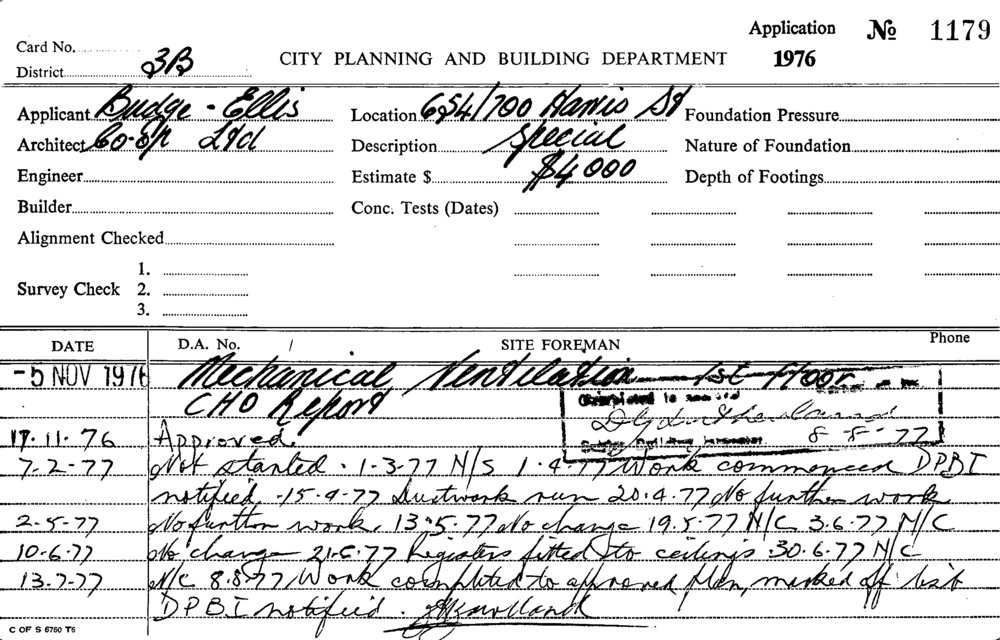 Application № 1179
Card No.
District 3B CITY PLANNING AND BUILDING DEPARTMENT 1976
Applicant Budge - Ellis Location 6954/700 Harris St Foundation Pressure
Architect Co-Op Ltd Description Special Nature of Foundation
Engineer Estimate $ $4000 Depth of Footings
Builder Conc. Tests (Dates)
Alignment Checked
1.
Survey Check 2.
3.
DATE D.A. No. / SITE FOREMAN Phone
-5 NOV 1976 Mechanical Ventilation 1st Floor
CHO Report
Completed to
8-8-77
17.11.76 Approved.
7-2-77 Not started. 1-3-77 N/S 1.4.77 Work commenced DPBI
notified. -15-4-77 Ductwork run 20.4.77 No further work
2-5-77 No further work. 13.5.77 No change 19.5.77 N/C 3.6.77 N/C
10-6-77 No change 21-6-77 Registers fitted to ceilings. 30.6.77 N/C
13-7-77 N/C 8.8.77 Work completed to approved plan, marked off list
DPBI notified.
C OF S 6760 T6